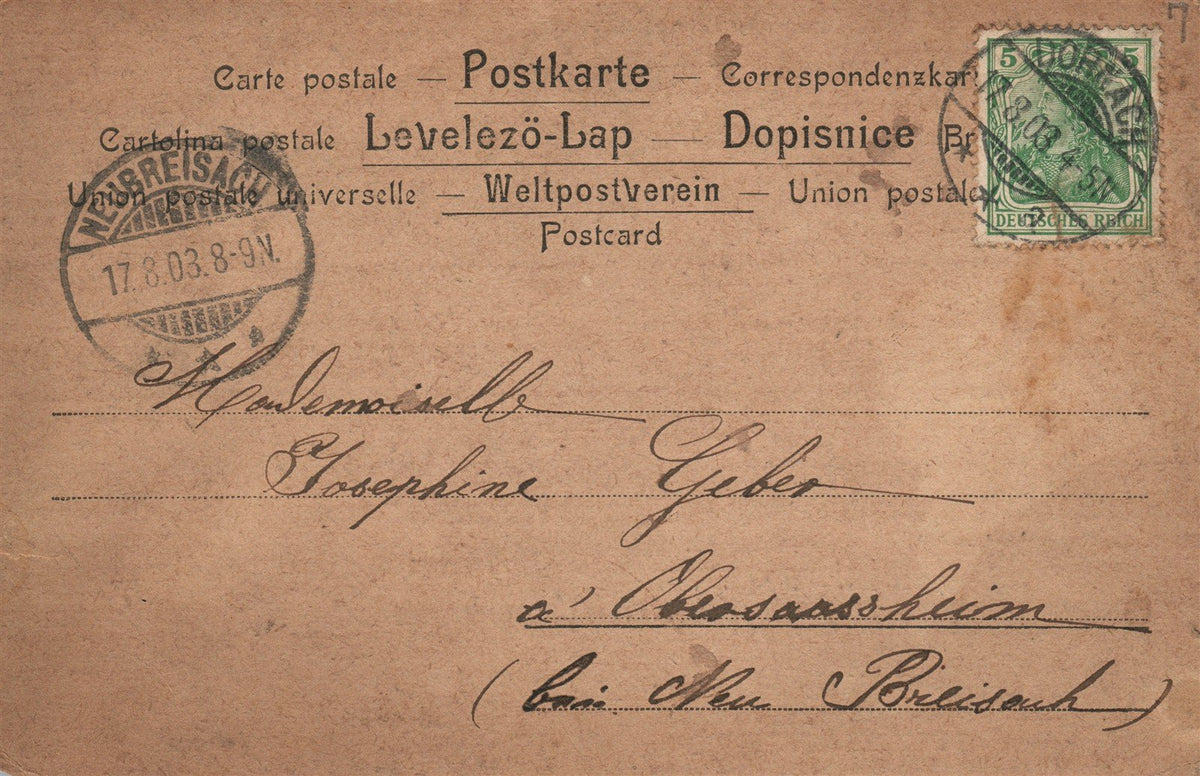 7
Carte postale — Postkarte — Correspondenzkar
Cartolina postale Levelezö-Lap — Dopisnice Br
Union postale universelle — Weltpostverein — Union postale
Postcard
5 5
DEUTSCHES REICH
DORNACH
17.8.03. 4-5N
NEUBREISACH
17.8.03. 8-9N.
Mademoiselle
Josephine Geber
a' Obersaassheim
(bei Neu Breisach)